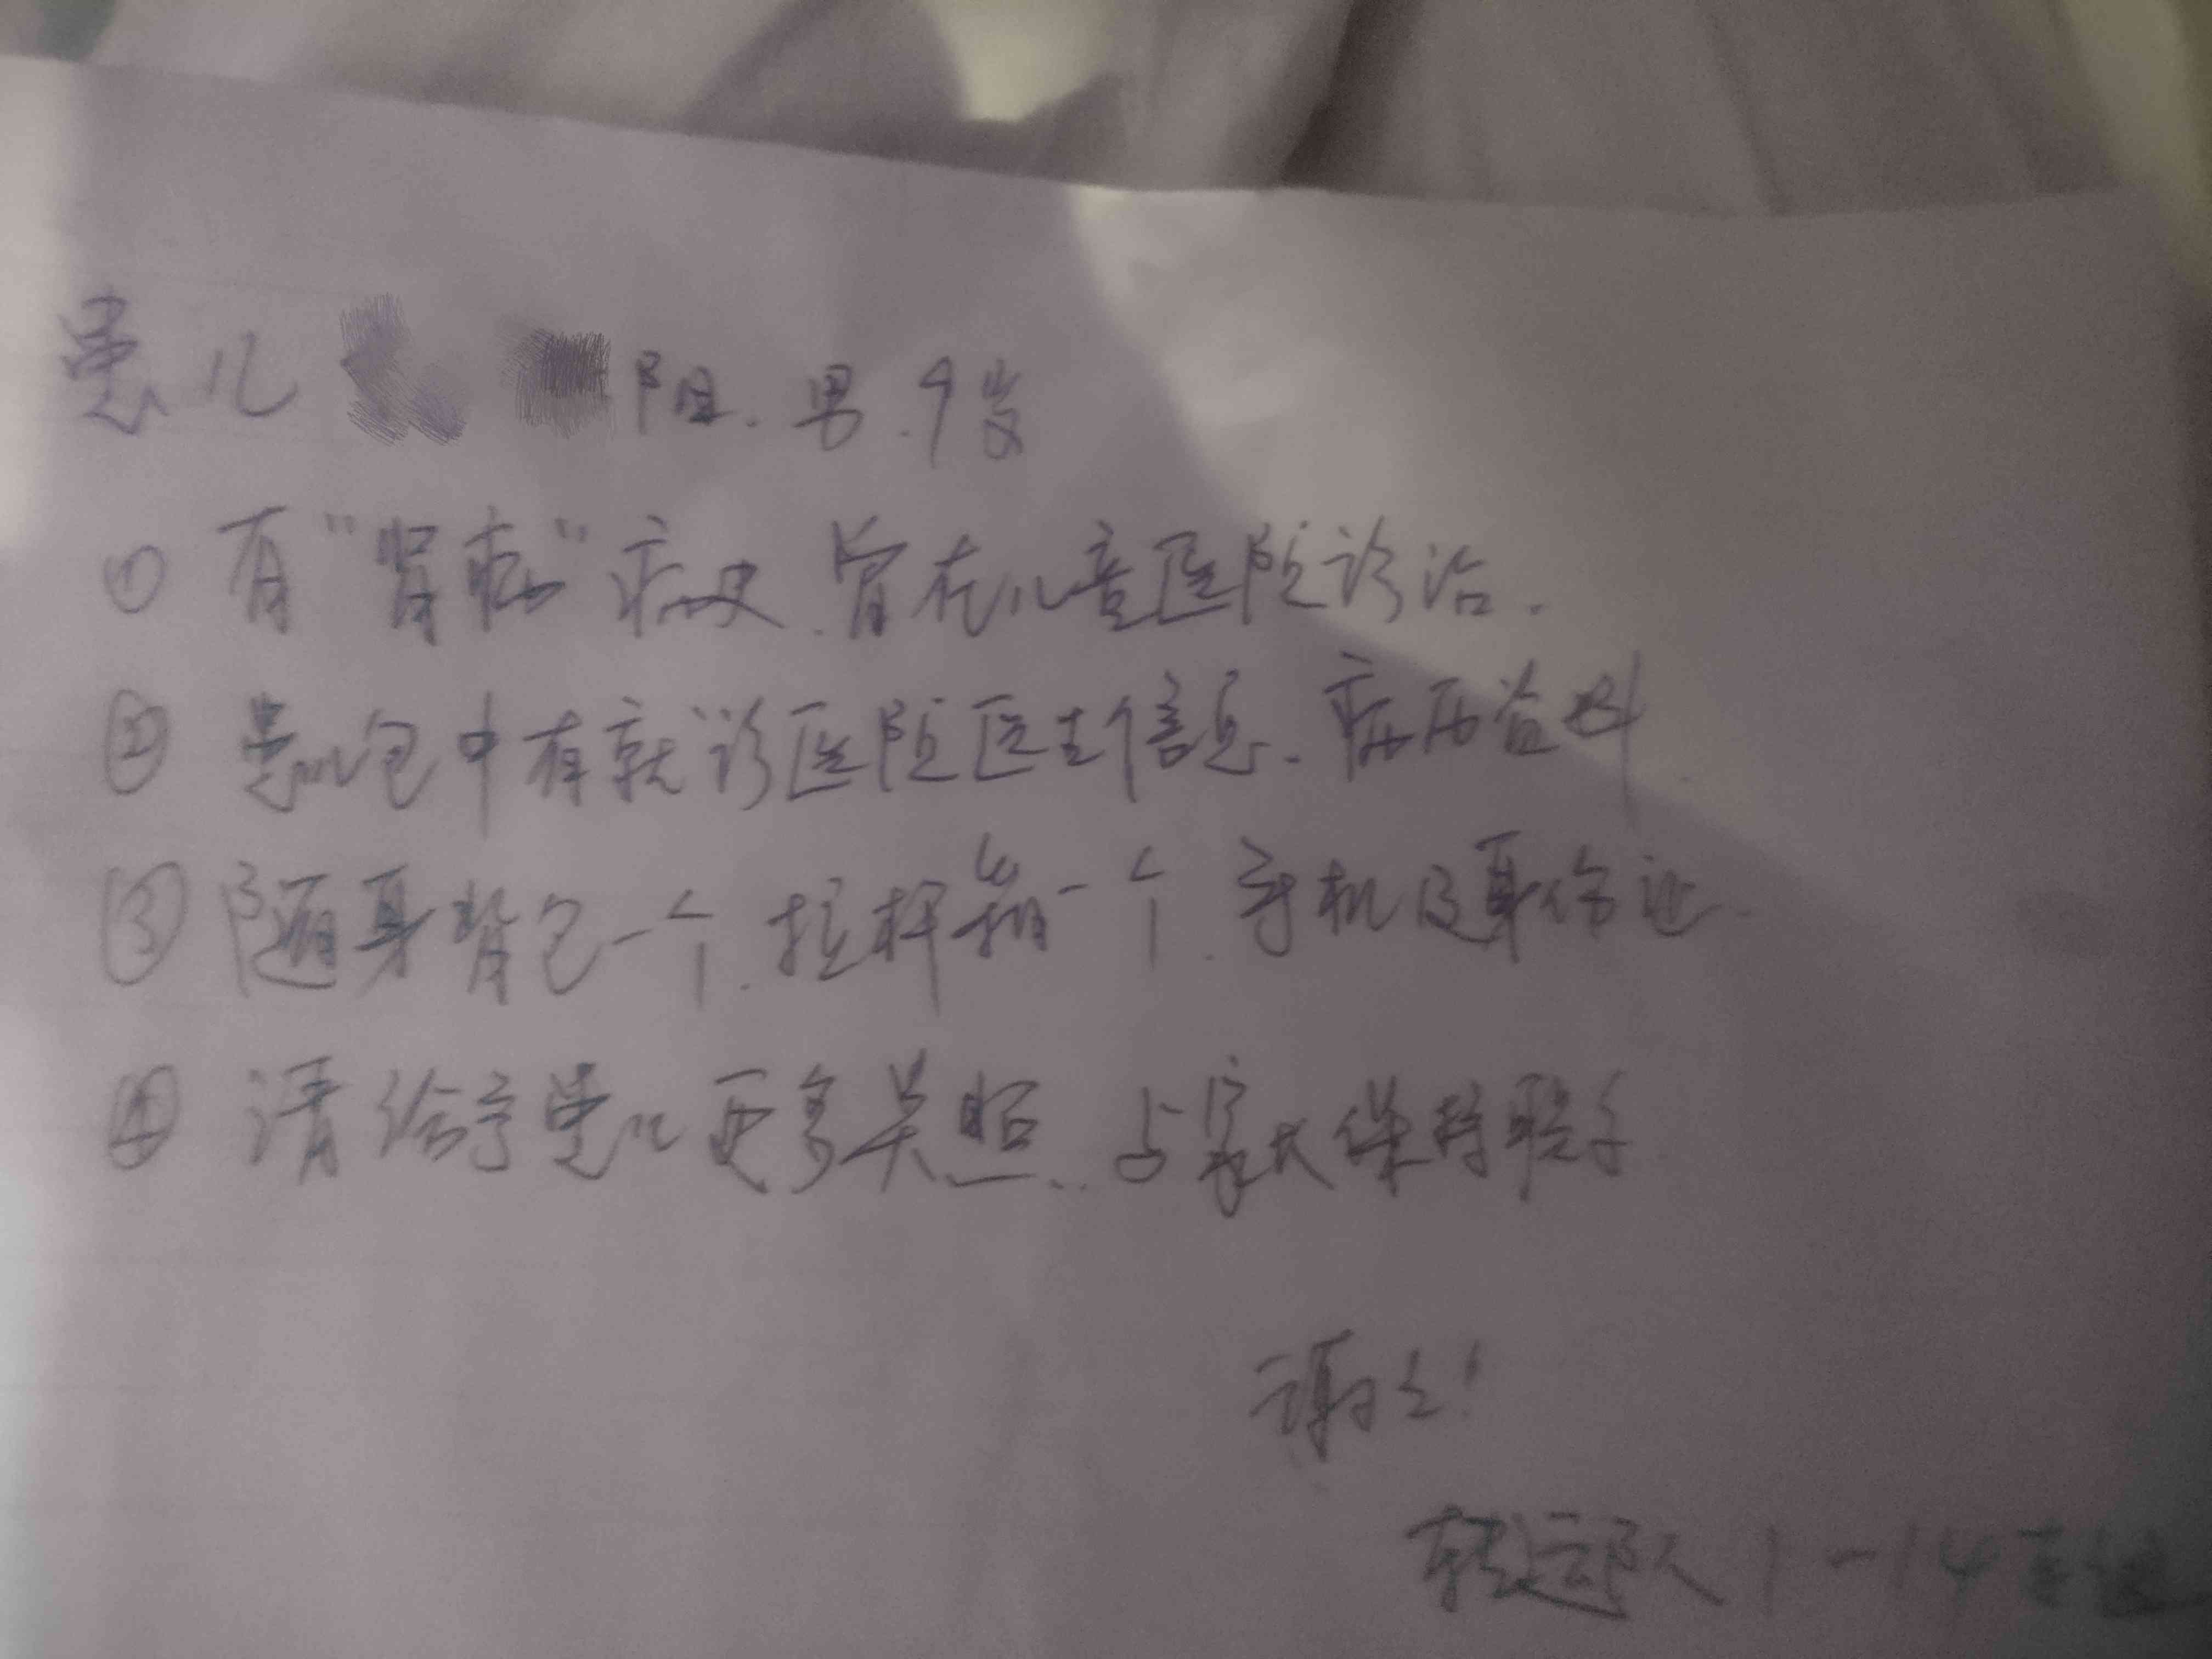 患儿 阳.男.9岁
① 有"肾病"病史.曾在儿童医院诊治.
② 患儿包中有就诊医院医生信息.病历资料.
③ 随身背包一个.拉杆箱一个.手机及身份证.
④ 请给予患儿更多关照.与家长保持联系
谢谢!
转运队1-14